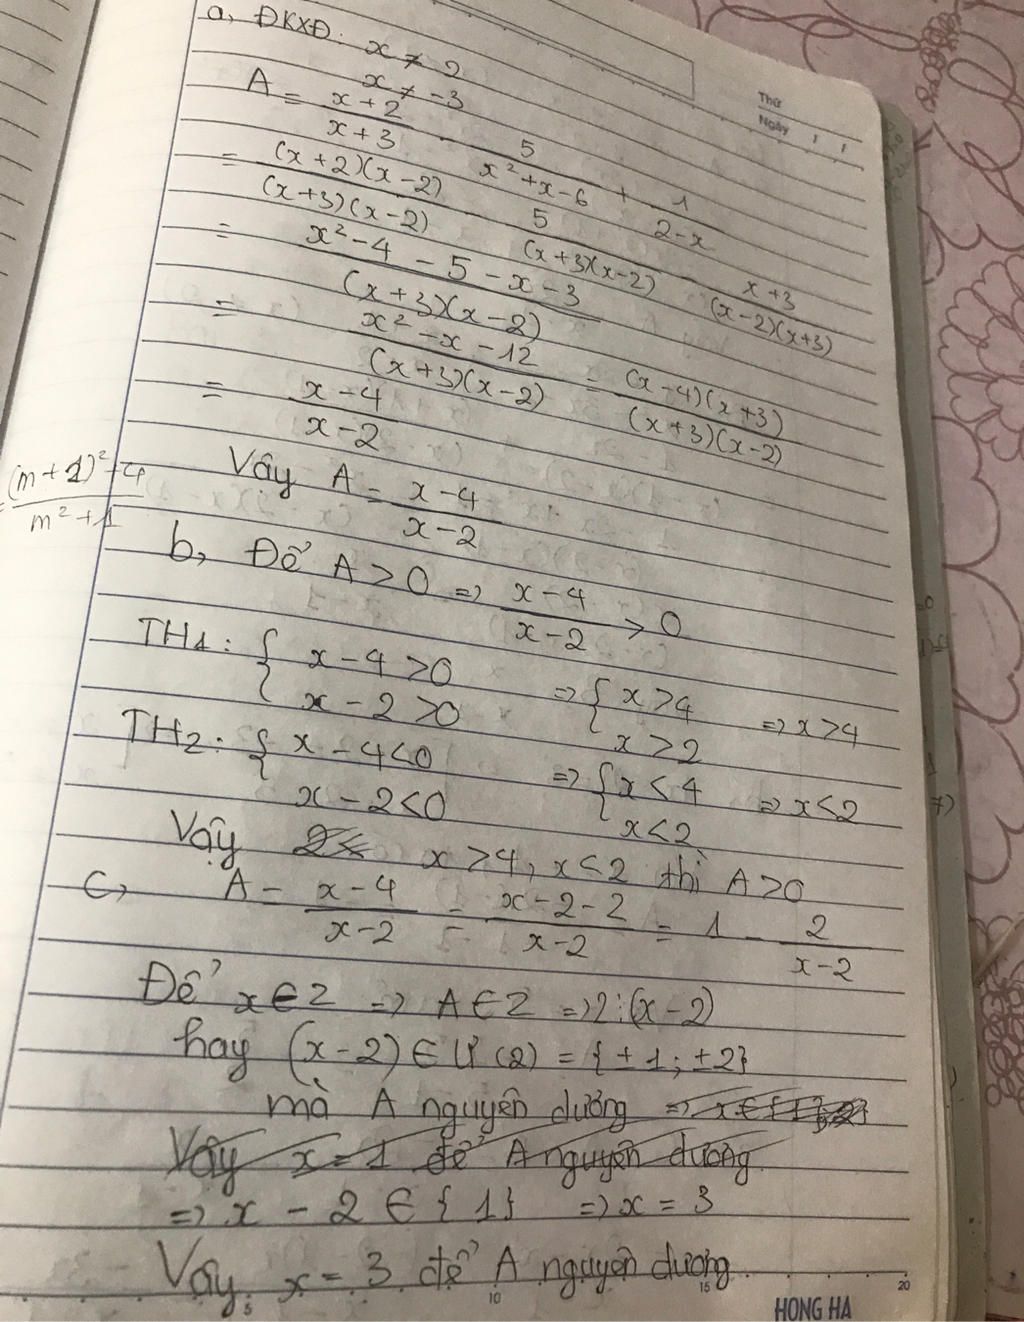 a, ĐKXĐ: x ≠ 2
x ≠ -3
Thứ
Ngày
A = (x+2)/(x+3) - 5/(x²+x-6) + 1/(2-x)
= (x+2)(x-2)/(x+3)(x-2) - 5/(x+3)(x-2) - (x+3)/(x-2)(x+3)
= (x²-4-5-x-3)/(x+3)(x-2)
= (x²-x-12)/(x+3)(x-2) = (x-4)(x+3)/(x+3)(x-2)
= (x-4)/(x-2)
Vây A = (x-4)/(x-2)
((m+1)²-4)/(m²+1)
b, Để A > 0 => (x-4)/(x-2) > 0
TH1: { x-4>0 => { x>4 => x>4
x-2>0 x>2
TH2: { x-4<0 => { x<4 => x<2
x-2<0 x<2
Vậy x>4, x<2 thì A>0
c, A = (x-4)/(x-2) = (x-2-2)/(x-2) = 1 - 2/(x-2)
Để x∈Z => A∈Z => 2⋮(x-2)
hay (x-2) ∈ Ư(2) = {±1; ±2}
mà A nguyên dương
Vây x=1 để A nguyên dương
=> x - 2 ∈ {1} => x = 3
Vây x = 3 để A nguyên dương
5 10 15 20
HONG HA